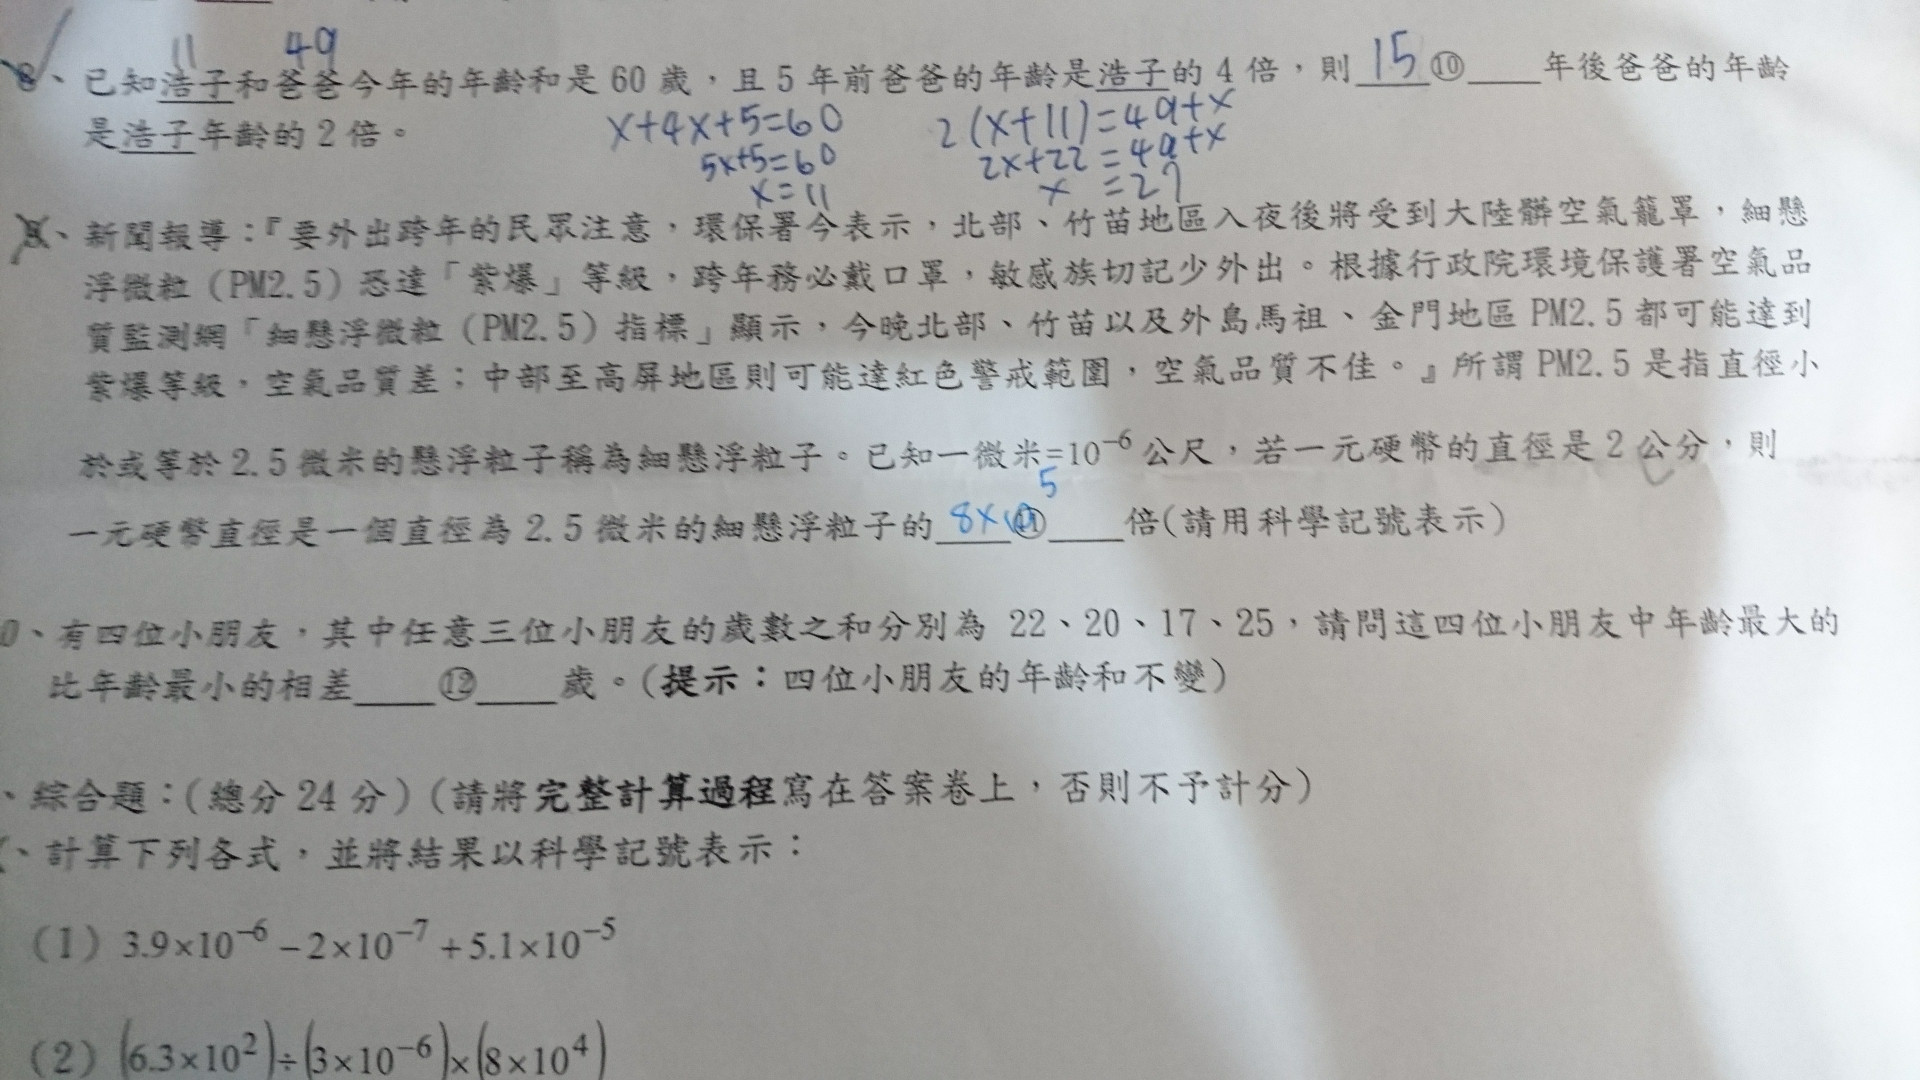 11 49
8、已知浩子和爸爸今年的年齡和是 60 歲，且 5 年前爸爸的年齡是浩子的 4 倍，則 15 ⑩____年後爸爸的年齡
是浩子年齡的 2 倍。
x+4x+5=60 2(x+11)=49+x
5x+5=60 2x+22=49+x
x=11 x=27
新聞報導：『要外出跨年的民眾注意，環保署今表示，北部、竹苗地區入夜後將受到大陸髒空氣籠罩，細懸
浮微粒（PM2.5）恐達「紫爆」等級，跨年務必戴口罩，敏感族切記少外出。根據行政院環境保護署空氣品
質監測網「細懸浮微粒（PM2.5）指標」顯示，今晚北部、竹苗以及外島馬祖、金門地區 PM2.5 都可能達到
紫爆等級，空氣品質差；中部至高屏地區則可能達紅色警戒範圍，空氣品質不佳。』所謂 PM2.5 是指直徑小
於或等於 2.5 微米的懸浮粒子稱為細懸浮粒子。已知一微米=10⁻⁶ 公尺，若一元硬幣的直徑是 2 公分，則
一元硬幣直徑是一個直徑為 2.5 微米的細懸浮粒子的 8×10⁵ ⑪____倍(請用科學記號表示)
0、有四位小朋友，其中任意三位小朋友的歲數之和分別為 22、20、17、25，請問這四位小朋友中年齡最大的
比年齡最小的相差____⑫____歲。(提示：四位小朋友的年齡和不變)
、綜合題：(總分 24 分)(請將完整計算過程寫在答案卷上，否則不予計分)
、計算下列各式，並將結果以科學記號表示：
(1) 3.9×10⁻⁶－2×10⁻⁷＋5.1×10⁻⁵
(2) (6.3×10²)÷(3×10⁻⁶)×(8×10⁴)